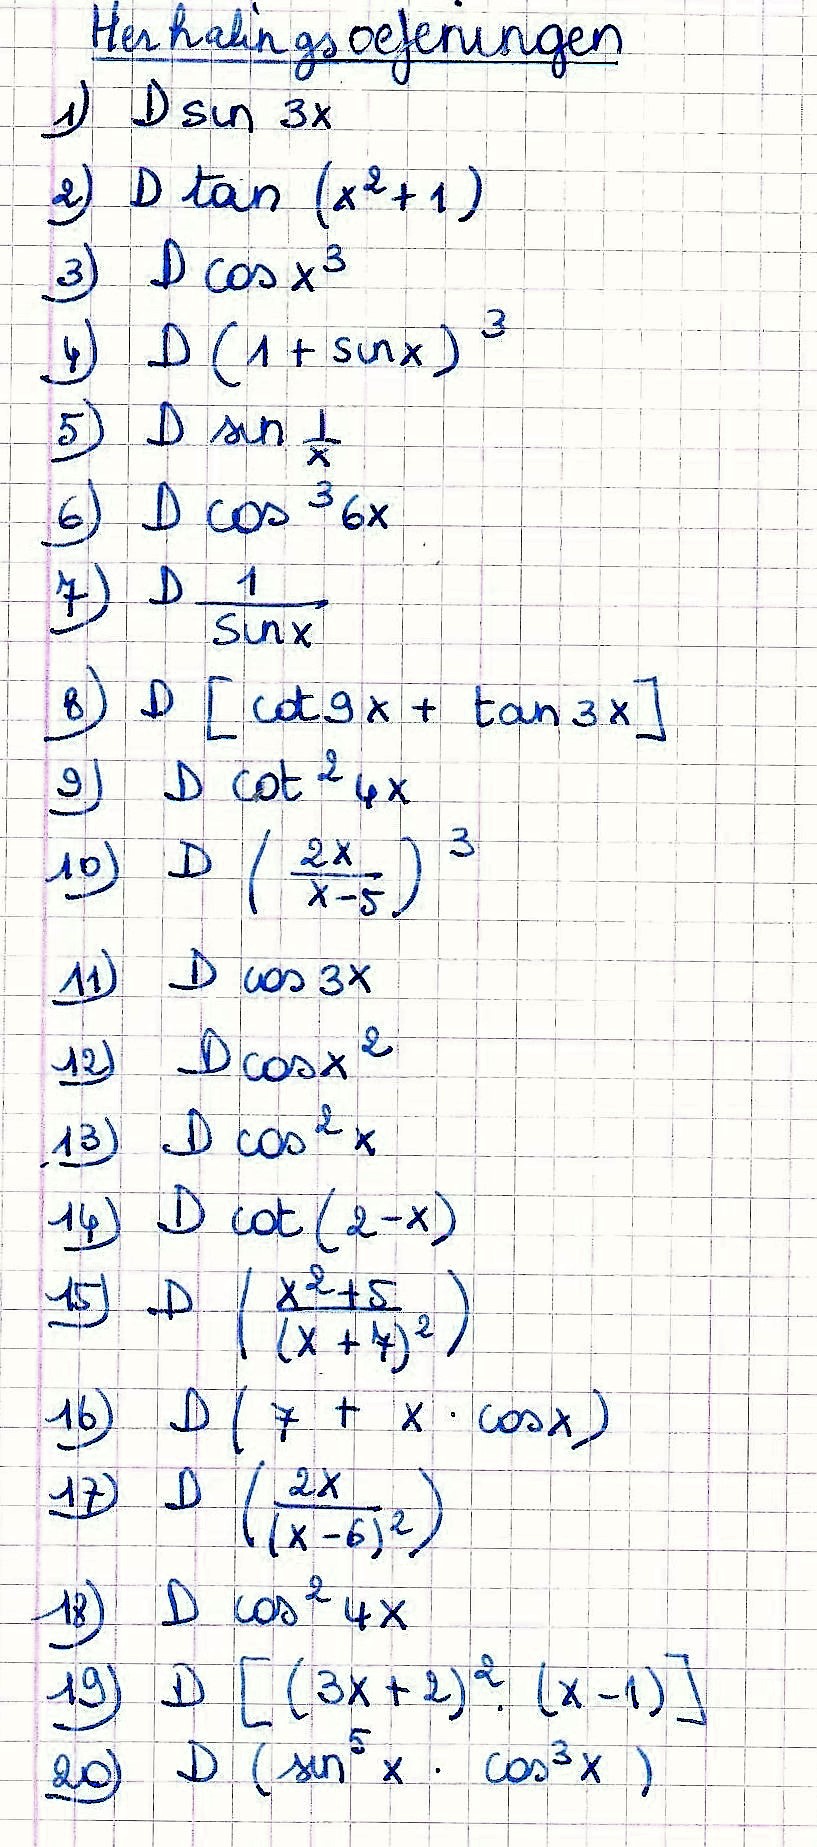 Herhalingsoefeningen
1) D sin 3x
2) D tan (x² + 1)
3) D cos x³
4) D (1 + sin x)³
5) D sin 1/x
6) D cos³ 6x
7) D 1/sin x
8) D [cot 9x + tan 3x]
9) D cot² 4x
10) D (2x/(x-5))³
11) D cos 3x
12) D cos x²
13) D cos² x
14) D cot (2-x)
15) D ((x²+5)/(x+7)²)
16) D (7 + x · cos x)
17) D (2x/(x-6)²)
18) D cos² 4x
19) D [(3x+2)² · (x-1)]
20) D (sin⁵ x · cos³ x)